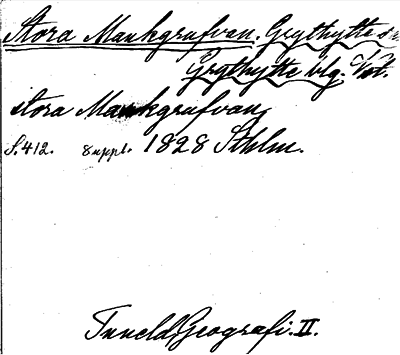 Stora Mankgrufvan. Grythytte s
Grythytte blg. Vst.
stora Mankgrufvan
S. 412. suppl. 1828 Sthlm.
Tuneld, Geografi. II.